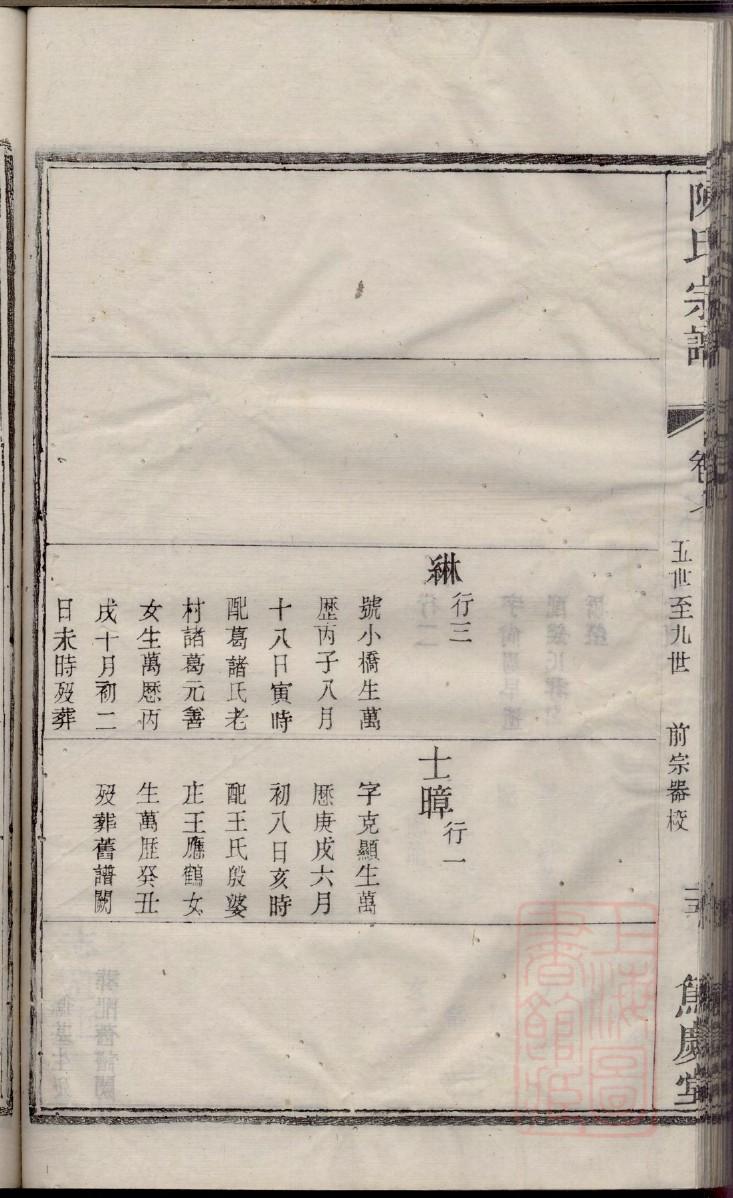 陳氏宗譜
卷
五世至九世
前宗器校
篤慶堂
綝行三
號小橋生萬
歷丙子八月
十八日寅時
配葛諸氏老
村諸葛元善
女生萬歷丙
戌十月初二
日未時歿葬
士暲行一
字克顯生萬
歷庚戌六月
初八日亥時
配王氏殷婆
庄王應鶴女
生萬歷癸丑
歿葬舊譜闕
上海圖書館藏